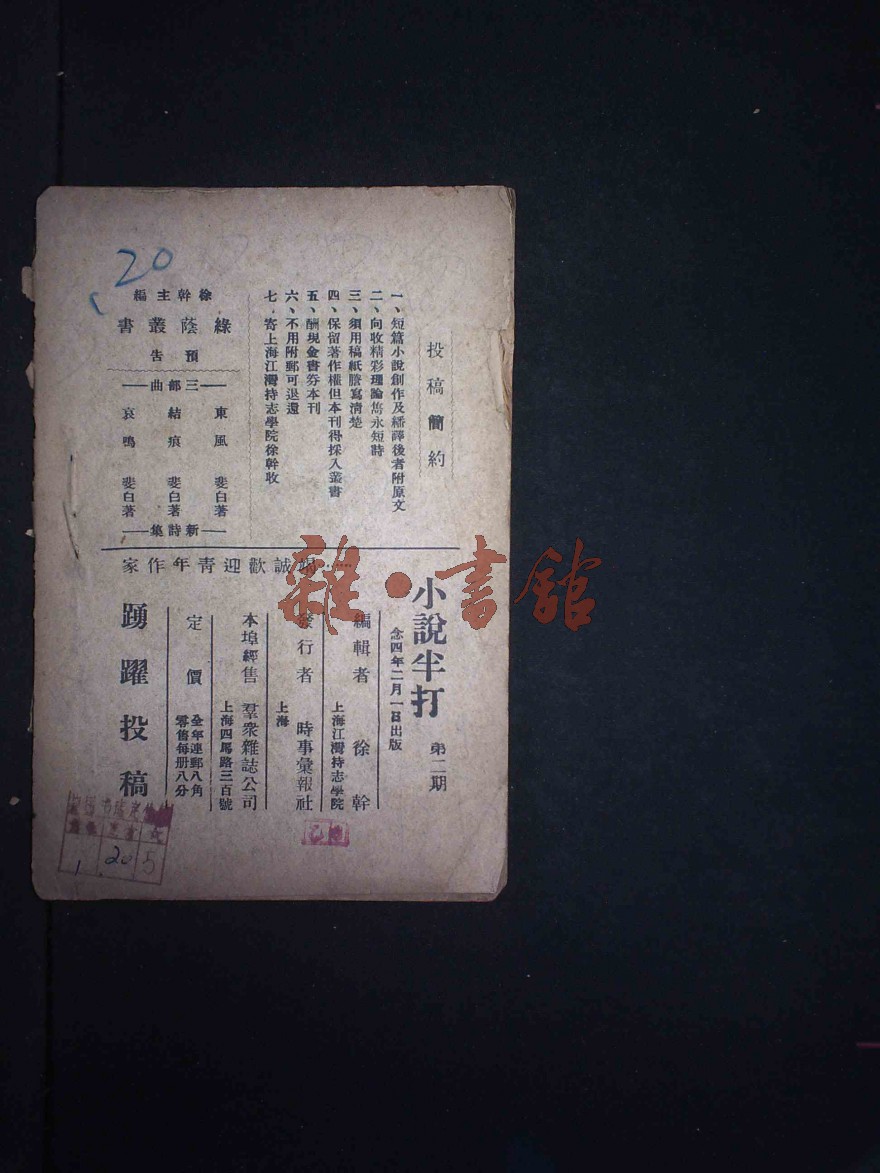 投稿簡約
一、短篇小說創作及繙譯後者附原文
二、向收精彩理論雋永短詩
三、須用稿紙謄寫清楚
四、保留著作權但本刊得採入叢書
五、酬現金書券本刊
六、不用附郵可退還
七、寄上海江灣持志學院徐幹收
徐幹主編
綠蔭叢書
預告
三部曲
東風 斐白著
結痕 斐白著
哀鳴 斐白著
新詩集
小說半打 第二期
念四年二月一日出版
編輯者 徐幹
上海江灣持志學院
發行者 時事彙報社
上海
本埠經售 羣衆雜誌公司
上海四馬路三百號
定價 全年連郵八角
零售每册八分
竭誠歡迎青年作家
踴躍投稿
雜·書館
20
20
5
1